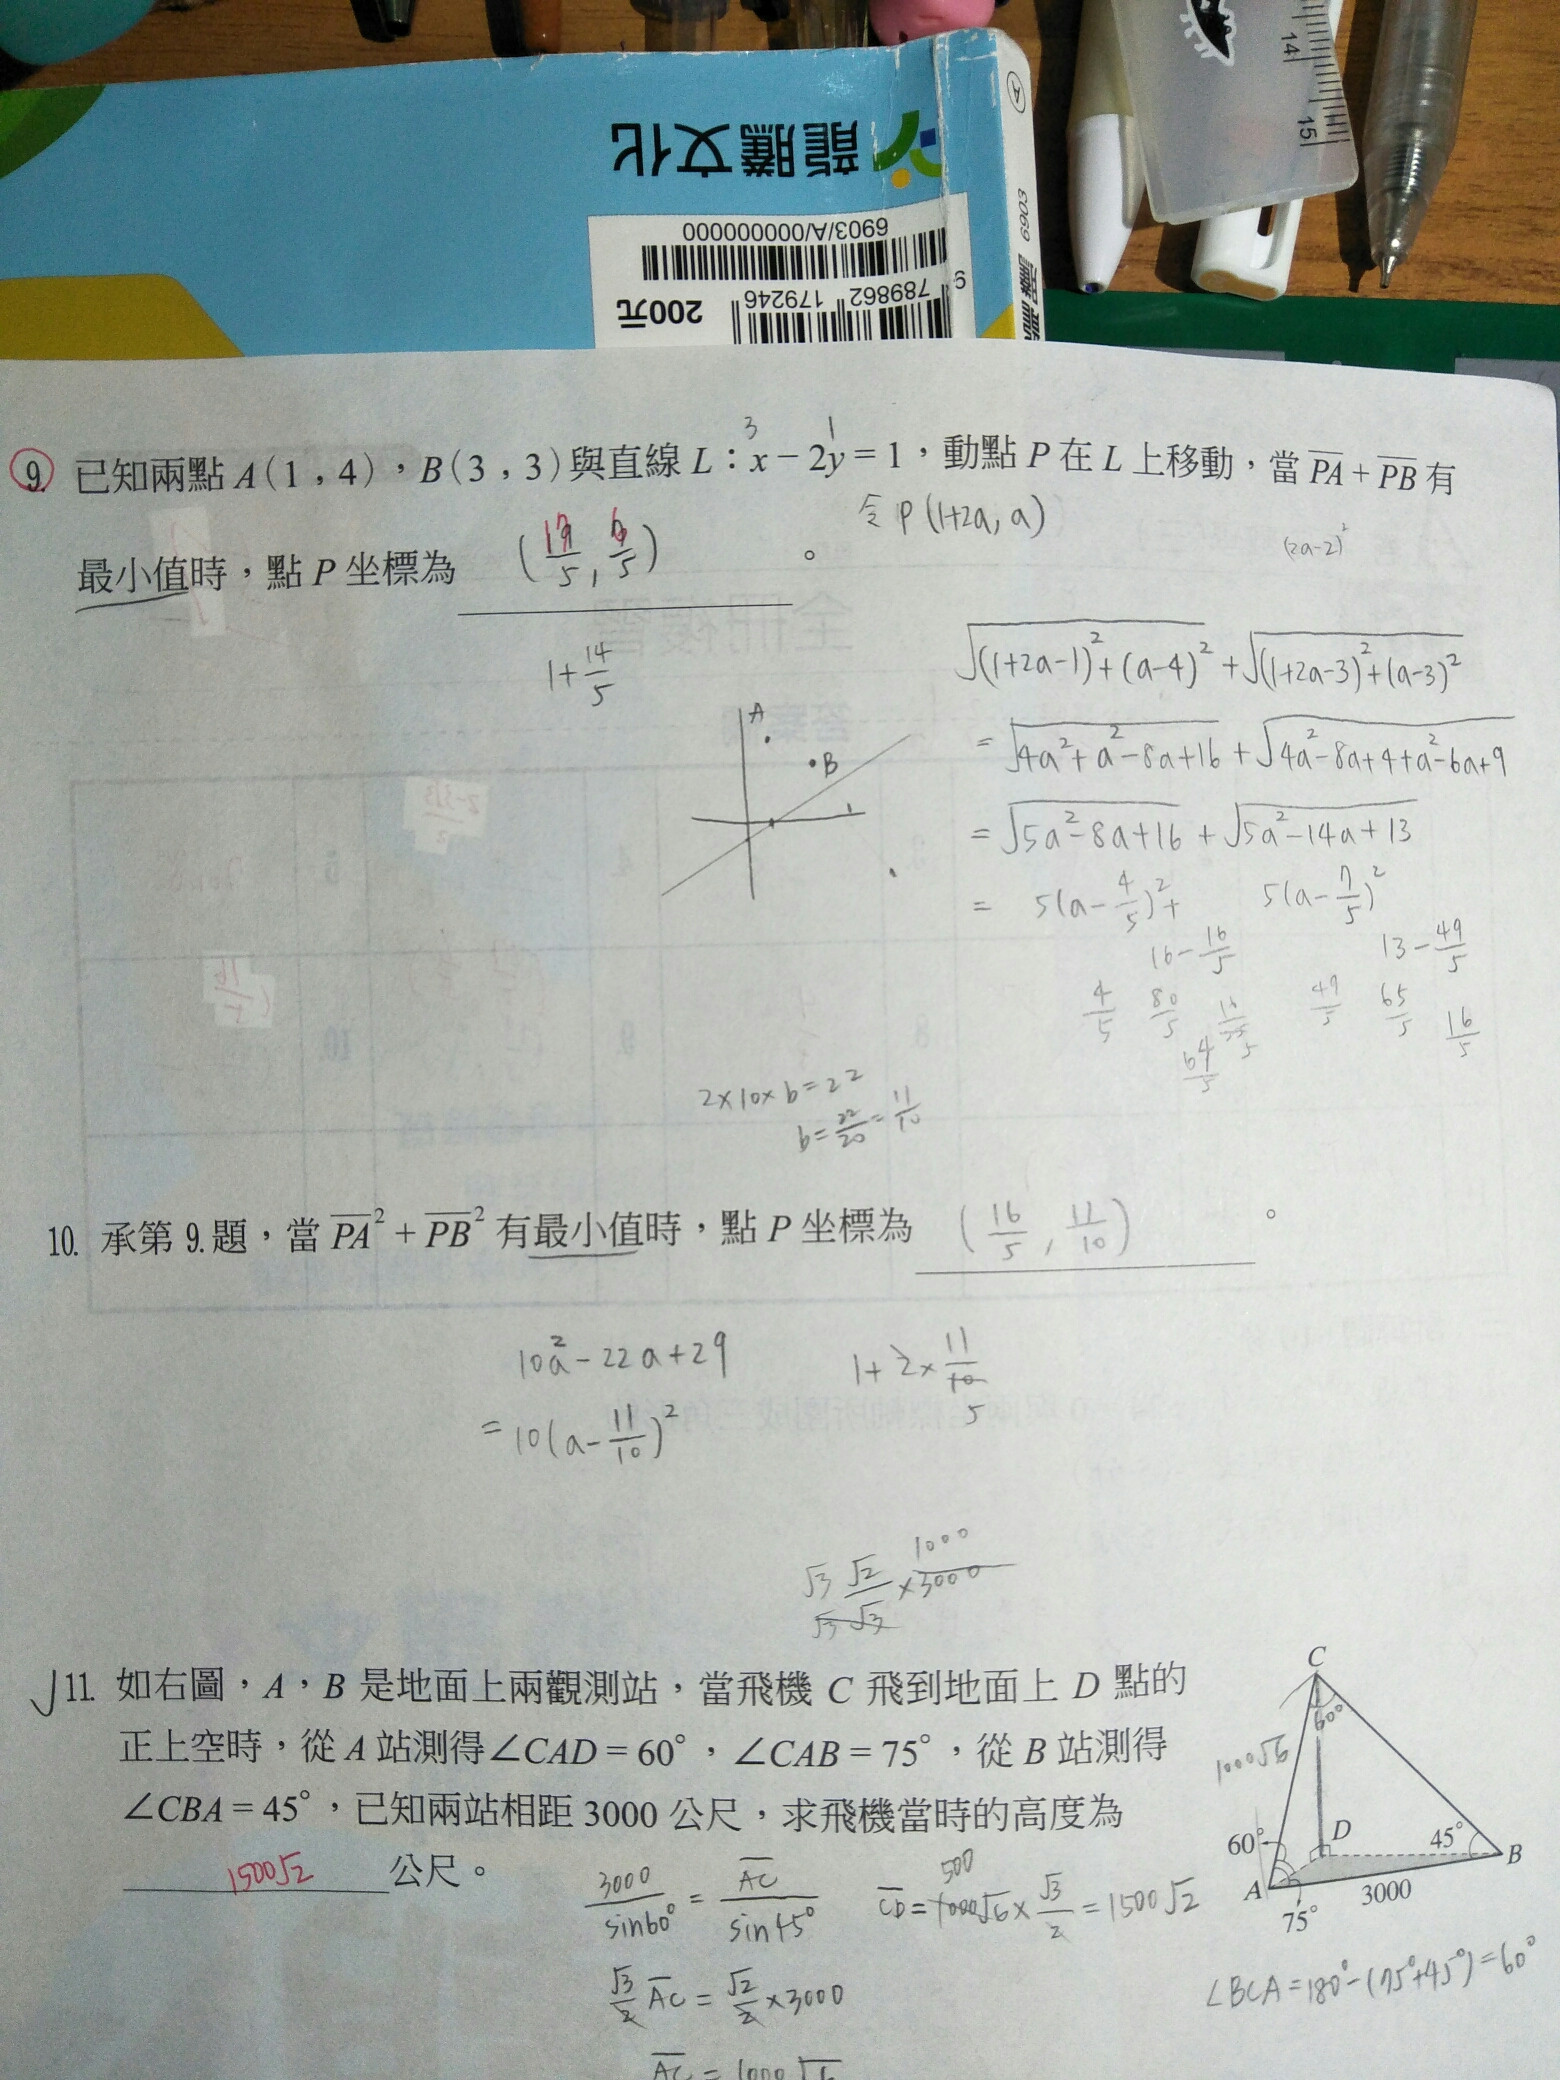 龍騰文化
6903/A/000000000
9 789862 179246
200元
6903
14
15
9. 已知兩點 A(1,4),B(3,3)與直線 L:x-2y=1,動點 P 在 L 上移動,當 PA+PB 有
3 1
令 P(1+2a, a)
(2a-2)²
最小值時,點 P 坐標為 (17/5, 6/5)。
1+14/5
√((1+2a-1)²+(a-4)²)+√((1+2a-3)²+(a-3)²)
=√(4a²+a²-8a+16)+√(4a²-8a+4+a²-6a+9)
=√(5a²-8a+16)+√(5a²-14a+13)
= 5(a-4/5)²+ 5(a-7/5)²
16-16/5 13-49/5
4/5 80/5 16/5 49/5 65/5 16/5
64/5
A
B
2×10×b=22
b=22/20=11/10
10. 承第 9.題,當 PA²+PB² 有最小值時,點 P 坐標為 (16/5, 11/10)。
10a²-22a+29
=10(a-11/10)²
1+2×11/10
5
√3 √2/√3 ×3000
1000
11. 如右圖,A,B 是地面上兩觀測站,當飛機 C 飛到地面上 D 點的
正上空時,從 A 站測得∠CAD=60°,∠CAB=75°,從 B 站測得
∠CBA=45°,已知兩站相距 3000 公尺,求飛機當時的高度為
1500√2 公尺。
3000/sin60°=AC/sin45°
√3/2 AC=√2/2×3000
AC=1000√6
500
CD=1000√6×√3/2=1500√2
C
60°
1000√6
60°
D
45°
B
A
3000
75°
∠BCA=180°-(75°+45°)=60°